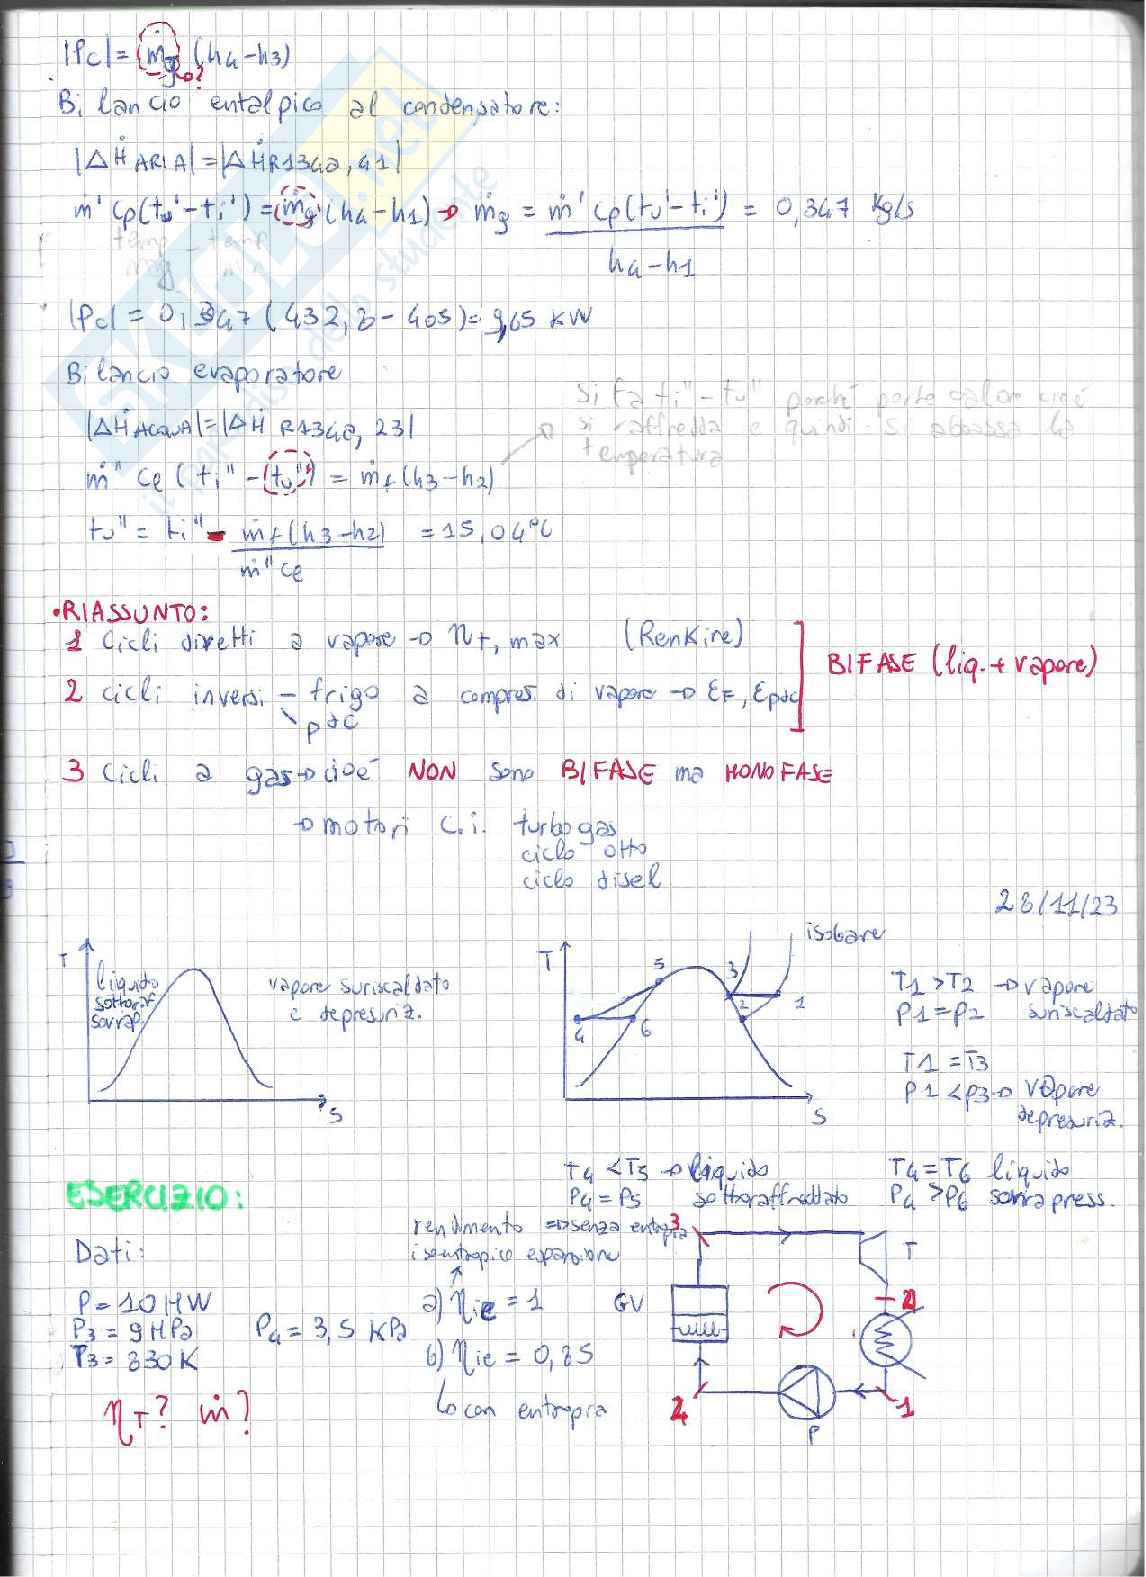 |Pc| = ṁg (h4-h3)
?
Bilancio entalpico al condensatore:
|ΔḢ ARIA| = |ΔḢ R134a, 41|
ṁ' cp(tu'-ti') = ṁg (h4-h1) → ṁg = ṁ' cp(tu'-ti') / h4-h1 = 0,347 Kg/s
temp - temp
|Pc| = 0,347 (432,8 - 405) = 9,65 KW
Bilancio evaporatore
si fa ti"-tu" perché perde calore cioè
si raffredda e quindi si abbassa la
temperatura
|ΔḢ ACQUA| = |ΔḢ R134a, 23|
ṁ" ce (ti" - (tu")) = ṁf (h3-h2)
tu" = ti" - ṁf (h3-h2) / ṁ" ce = 15,04°C
•RIASSUNTO:
1 Cicli diretti a vapore → ηt, max (RenKine)
2 cicli inversi - frigo a compres di vapore → εF, εpdc
pdc
BIFASE (liq. + vapore)
3 Cicli a gas → cioé NON sono BIFASE ma MONOFASE
→ motori c.i. turbogas
ciclo otto
ciclo disel
28/11/23
T
liquido
sottoraf
sovrap.
vapore suriscaldato
e depresuriz.
S
T
isobare
5
3
2
1
4
6
S
T1 > T2 → vapore
P1 = P2 suriscaldato
T1 = T3
P1 < P3 → vapore
depresuriz.
T4 < T5 → liquido
P4 = P5 sottoraffreddato
T4 = T6 liquido
P4 > P6 sovrapress.
ESERCIZIO:
Dati:
P = 10 MW
P3 = 9 MPa P4 = 3,5 KPa
T3 = 830 K
ηT? ṁ?
rendimento => senza entropia
isentropico espansione
a) ηie = 1
b) ηie = 0,85
↳ con entropia
3
T
GV
4
2
P
1